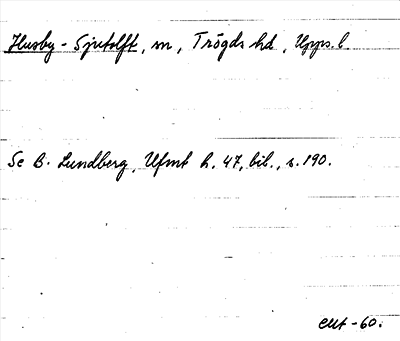 Husby-Sjutolft, sn, Trögds hd, Upps. l.
Se B. Lundberg, Ufmt h. 47, bil., s. 190.
-60.